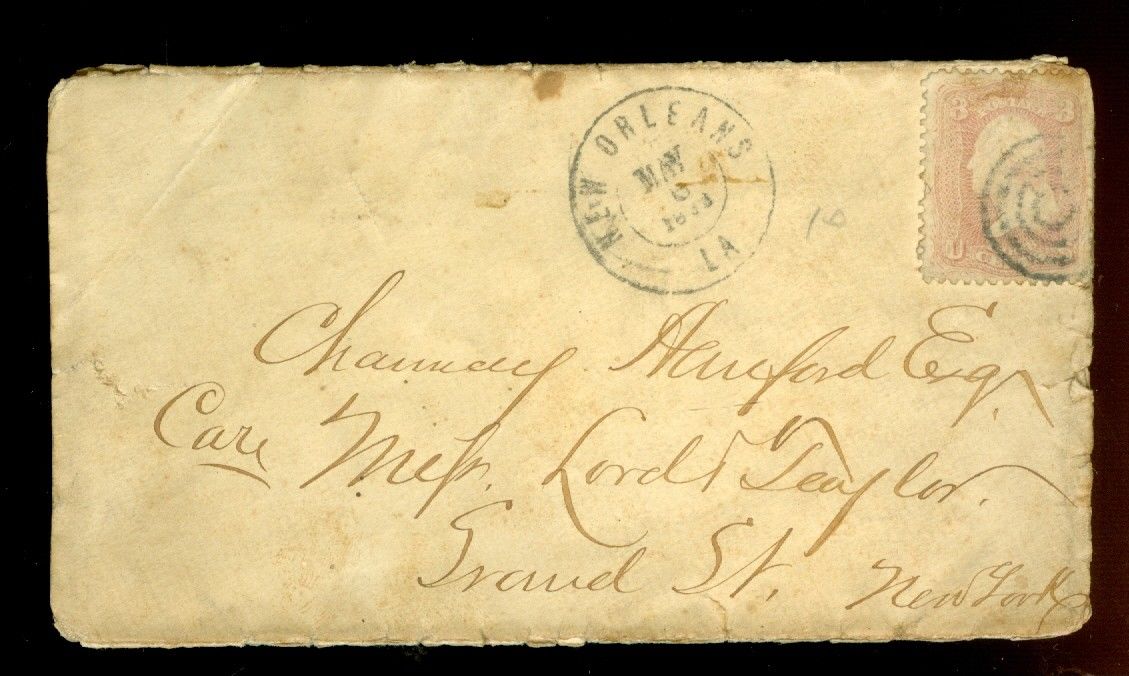 NEW ORLEANS LA
MAY
3 POSTAGE 3
U
Chauncey Hanford Esqr
Care Mess. Lord & Taylor.
Grand St. New York